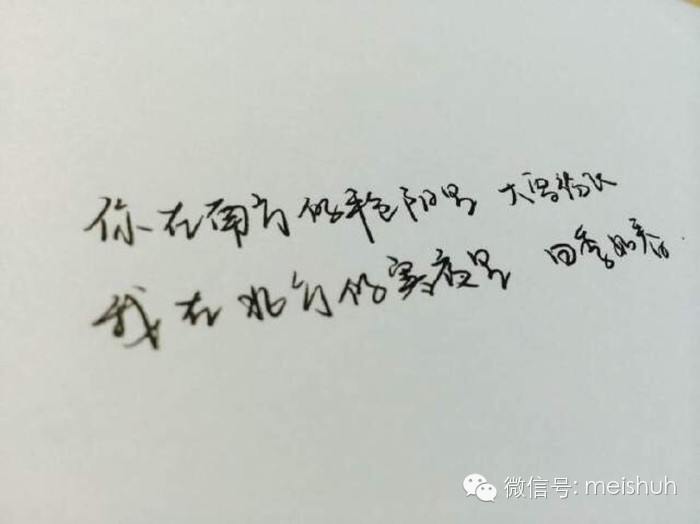 你在南方的艳阳里 大雪纷飞
我在北方的寒夜里 四季如春.
微信号: meishuh